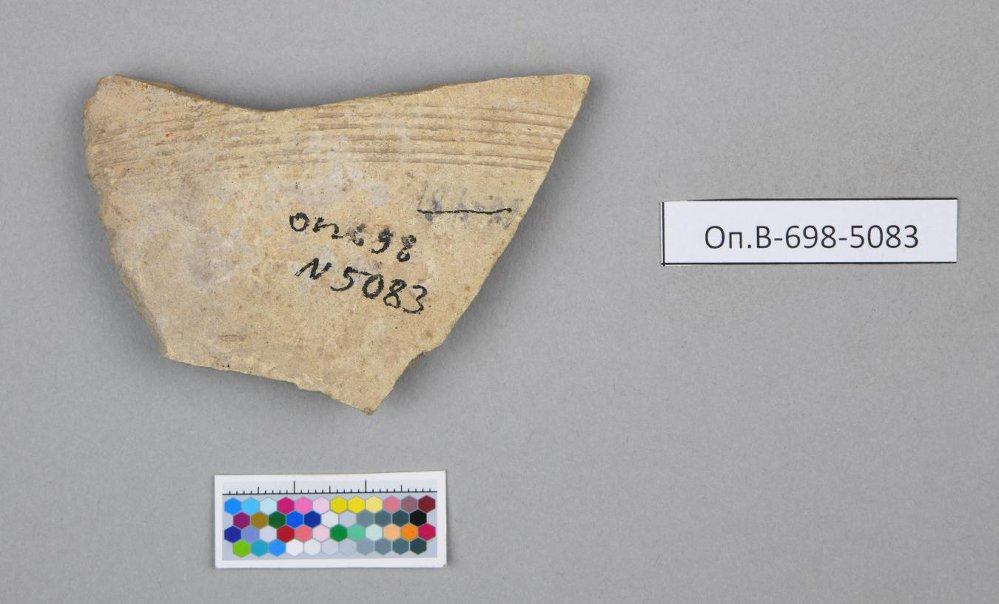 оп 698
N 5083
Оп.В-698-5083